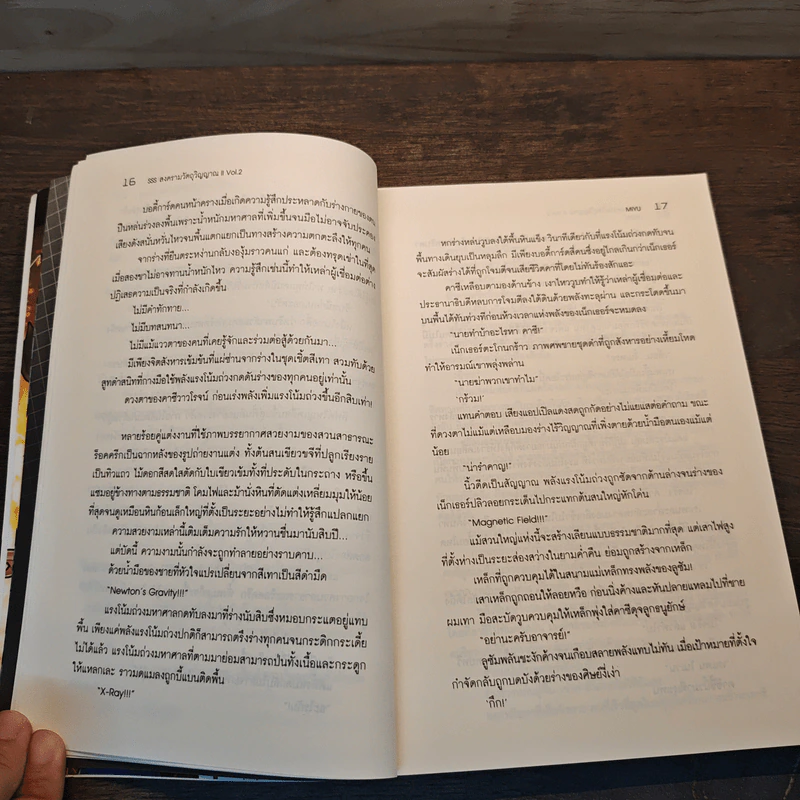 16 SSS สงครามวัตถุวิญญาณ II Vol.2
บอดี้การ์ดคนหน้าครางเมื่อเกิดความรู้สึกประหลาดกับร่างกายของตน
เป็นหล่นร่วงลงพื้นเพราะน้ำหนักมหาศาลที่เพิ่มขึ้นจนมือไม่อาจจับประคอง
เสียงดังสนั่นหวั่นไหวจนพื้นแตกแยกเป็นทางสร้างความตกตะลึงให้ทุกคน
จากร่างที่ยืนตระหง่านกลับงองุ้มราวคนแก่ และต้องทรุดเข่าในที่สุด
เมื่อสองขาไม่อาจทานน้ำหนักไหว ความรู้สึกเช่นนี้ทำให้เหล่าผู้เชื่อมต่อต่าง
ปฏิเสธความเป็นจริงที่กำลังเกิดขึ้น
ไม่มีคำทักทาย...
ไม่มีบทสนทนา...
ไม่มีแม้แววตาของคนที่เคยรู้จักและร่วมต่อสู้ด้วยกันมา...
มีเพียงจิตสังหารเข้มข้นที่แผ่ซ่านจากร่างในชุดเชิ้ตสีเทา สวมทับด้วย
สูทดำสนิทที่กางมือใช้พลังแรงโน้มถ่วงกดดันร่างของทุกคนอยู่เท่านั้น
ดวงตาของคาซีวาวโรจน์ ก่อนเร่งพลังเพิ่มแรงโน้มถ่วงขึ้นอีกสิบเท่า!
หลายร้อยคู่แต่งงานที่ใช้ภาพบรรยากาศสวยงามของสวนสาธารณะ
ร็อคครีกเป็นฉากหลังของรูปถ่ายงานแต่ง ทั้งต้นสนเขียวขจีที่ปลูกเรียงราย
เป็นทิวแถว ไม้ดอกสีสดใสตัดกับใบเขียวเข้มทั้งที่ประดับในกระถาง หรือขึ้น
แซมอยู่ข้างทางตามธรรมชาติ โคมไฟและม้านั่งหินที่ตัดแต่งเหลี่ยมมุมให้น้อย
ที่สุดจนดูเหมือนหินก้อนเล็กใหญ่ที่ตั้งเป็นระยะอย่างไม่ทำให้รู้สึกแปลกแยก
ความสวยงามเหล่านี้เติมเต็มความรักให้หวานชื่นมานับสิบปี...
แต่บัดนี้ ความงามนั้นกำลังจะถูกทำลายอย่างราบคาบ...
ด้วยน้ำมือของชายที่หัวใจแปรเปลี่ยนจากสีเทาเป็นสีดำมืด
"Newton's Gravity!!!"
แรงโน้มถ่วงมหาศาลกดทับลงมาที่ร่างนับสิบซึ่งหมอบกระแตอยู่แทบ
พื้น เพียงแค่พลังแรงโน้มถ่วงปกติก็สามารถตรึงร่างทุกคนจนกระดิกกระเดี้ย
ไม่ได้แล้ว แรงโน้มถ่วงมหาศาลที่ตามมาย่อมสามารถป่นทั้งเนื้อและกระดูก
ให้แหลกเละ ราวมดแมลงถูกบี้แบนติดพื้น
"X-Ray!!!"
MIYU 17
หกร่างหล่นวูบลงใต้พื้นหินแข็ง วินาทีเดียวกับที่แรงโน้มถ่วงกดทับจน
พื้นทางเดินยุบเป็นหลุมลึก มีเพียงบอดี้การ์ดสี่คนซึ่งอยู่ไกลเกินกว่าเน็กเธอร์
จะสัมผัสร่างได้ที่ถูกโจมตีจนเสียชีวิตคาที่โดยไม่ทันร้องสักแอะ
คาซีเหลือบตามองด้านข้าง เงาไหววูบทำให้รู้ว่าเหล่าผู้เชื่อมต่อและ
ประธานาธิบดีหลบการโจมตีลงใต้ดินด้วยพลังทะลุผ่าน และกระโดดขึ้นมา
บนพื้นได้ทันท่วงทีก่อนห้วงเวลาแห่งพลังของเน็กเธอร์จะหมดลง
"นายทำบ้าอะไรหา คาซี!"
เน็กเธอร์ตะโกนกร้าว ภาพศพชายชุดดำที่ถูกสังหารอย่างเหี้ยมโหด
ทำให้อารมณ์เขาพลุ่งพล่าน
"นายฆ่าพวกเขาทำไม"
'กร้วม!'
แทนคำตอบ เสียงแอปเปิลแดงสดถูกกัดอย่างไม่แยแสต่อคำถาม ขณะ
ที่ดวงตาไม่แม้แต่เหลือบมองร่างไร้วิญญาณที่เพิ่งตายด้วยน้ำมือตนเองแม้แต่
น้อย
"น่ารำคาญ!"
นิ้วดีดเป็นสัญญาณ พลังแรงโน้มถ่วงถูกซัดจากด้านล่างจนร่างของ
เน็กเธอร์ปลิวลอยกระเด็นไปกระแทกต้นสนใหญ่หักโค่น
"Magnetic Field!!!"
แม้สวนใหญ่แห่งนี้จะสร้างเลียนแบบธรรมชาติมากที่สุด แต่เสาไฟสูง
ที่ตั้งห่างเป็นระยะส่องสว่างในยามค่ำคืน ย่อมถูกสร้างจากเหล็ก
เหล็กที่ถูกควบคุมได้ในสนามแม่เหล็กทรงพลังของลูซัม!
เสาเหล็กถูกถอนให้ลอยหวือ ก่อนนิ่งค้างและหันปลายแหลมไปที่ชาย
ผมเทา มือสะบัดวูบควบคุมให้เหล็กพุ่งใส่คาซีดุจลูกธนูยักษ์
"อย่านะครับอาจารย์!"
ลูซัมพลันชะงักค้างจนเกือบสลายพลังแทบไม่ทัน เมื่อเป้าหมายที่ตั้งใจ
กำจัดกลับถูกบดบังด้วยร่างของศิษย์ขี้เง่า
'กึก!'